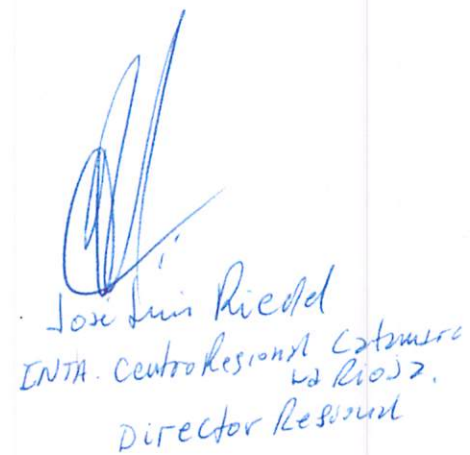 José Luis Riedel
INTA. Centro Regional Catamarca
La Rioja.
Director Regional